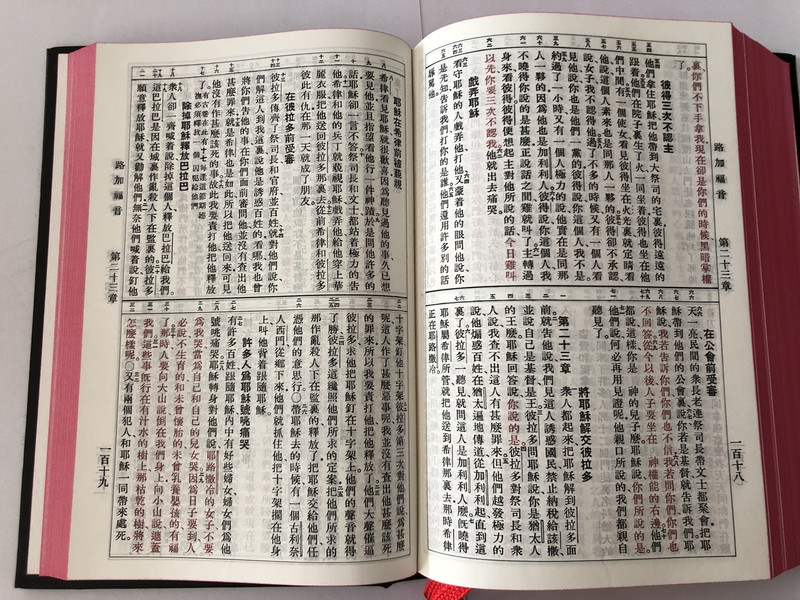 路加福音　第二十三章
一百十八
裏你們不下手拿我現在卻是你們的時候黑暗掌權
了。
彼得三次不認主
他們拿住耶穌把他帶到大祭司的宅裏彼得遠遠的
跟着他們在院子裏生了火一同坐着彼得也坐在他
們中間有一個使女看見彼得坐在火光裏就定睛看
他說這個人素來也是同那人一夥的彼得卻不承認
說女子我不認得他過了不多的時候又有一個人看
見他說你也是他們一黨的彼得說你這個人我不是
約過了一小時又有一個人極力的說他實在是同那
人一夥的因爲他也是加利利人彼得說你這個人我
不曉得你說的是甚麼正說話之間雞就叫了主轉過
身來看彼得彼得便想起主對他所說的話今日雞叫
以先你要三次不認我他就出去痛哭。
戲弄耶穌
看守耶穌的人戲弄他打他又蒙着他的眼問他說你
是先知告訴我們打你的是誰他們還用許多別的話
辱罵他。
在公會前受審
天一亮民間的衆長老連祭司長帶文士都聚會把耶
穌帶到他們的公會裏說你若是基督就告訴我們耶
穌說我若告訴你們你們也不信我若問你們你們也
不回答從今以後人子要坐在　神權能的右邊他們
都說這樣你是　神的兒子麼耶穌說你們所說的是
他們說何必再用見證呢他親口所說的我們都親自
聽見了。
將耶穌解交彼拉多
第二十三章　衆人都起來把耶穌解到彼拉多面
前就告他說我們見這人誘惑國民禁止納稅給該撒
並說自己是基督是王彼拉多問耶穌說你是猶太人
的王麼耶穌回答說你說的是彼拉多對祭司長和衆
人說我查不出這人有甚麼罪來但他們越發極力的
說他煽惑百姓在猶太遍地傳道從加利利起直到這
裏了彼拉多一聽見就問這人是加利利人麼旣曉得
耶穌屬希律所管就把他送到希律那裏去那時希律
正在耶路撒冷。
耶穌在希律前被藐視
希律看見耶穌就很歡喜因爲聽見過他的事久已想
要見他並且指望看他行一件神蹟於是問他許多的
話耶穌卻一言不答祭司長和文士都站着極力的告
他希律和他的兵丁就藐視耶穌戲弄他給他穿上華
麗衣服把他送回彼拉多那裏去從前希律和彼拉多
彼此有仇在那一天就成了朋友
在彼拉多前受審
彼拉多傳齊了祭司長和官府並百姓就對他們說你
們解這人到我這裏說他是誘惑百姓的看哪我也曾
將你們告他的事在你們面前審問他並沒有查出他
甚麼罪來就是希律也是如此所以把他送回來可見
他沒有作甚麼該死的事故此我要責打他把他釋放
了有古卷在此有十七每逢這節期巡撫必須釋放一個囚犯給他們
除掉耶穌釋放巴拉巴
衆人卻一齊喊着說除掉這個人釋放巴拉巴給我們。
這巴拉巴是因在城裏作亂殺人下在監裏的彼拉多
願意釋放耶穌就又勸解他們無奈他們喊着說釘他
十字架釘他十字架彼拉多第三次對他們說爲甚麼
呢這人作了甚麼惡事呢我並沒有查出他甚麼該死
的罪來所以我要責打他把他釋放了他們大聲催逼
彼拉多求他把耶穌釘在十字架上他們的聲音就得
了勝彼拉多這纔照他們所求的定案把他們所求的
那作亂殺人下在監裏的釋放了把耶穌交給他們任
憑他們的意思行○帶耶穌去的時候有一個古利奈
人西門從鄉下來他們就抓住他把十字架擱在他身
上叫他背着跟隨耶穌。
許多人爲耶穌號咷痛哭
有許多百姓跟隨耶穌內中有好些婦女婦女們爲他
號咷痛哭耶穌轉身對他們說耶路撒冷的女子不要
爲我哭當爲自己和自己的兒女哭因爲日子要到人
必說不生育的和未曾懷胎的未曾乳養嬰孩的有福
了那時人要向大山說倒在我們身上向小山說遮蓋
我們這些事旣行在有汁水的樹上那枯乾的樹將來
怎麼樣呢○又有兩個犯人和耶穌一同帶來處死。
路加福音　第二十三章
一百十九